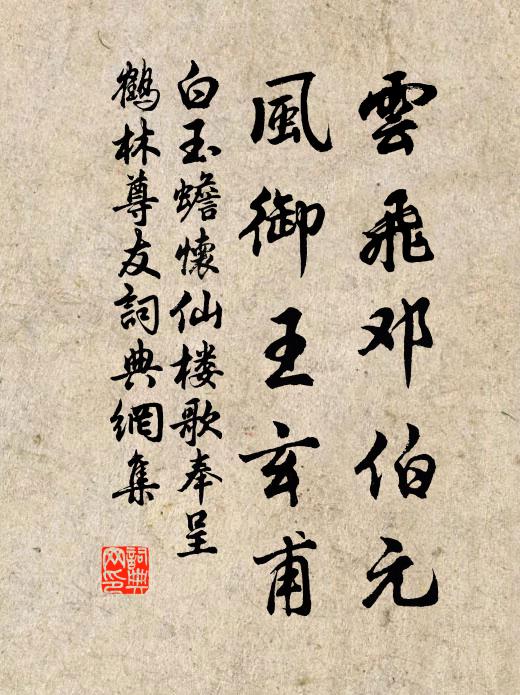 雲飛邓伯元
風御王玄甫
白玉蟾懷仙楼歌奉呈
鶴林尊友詞典網集
詞典网印